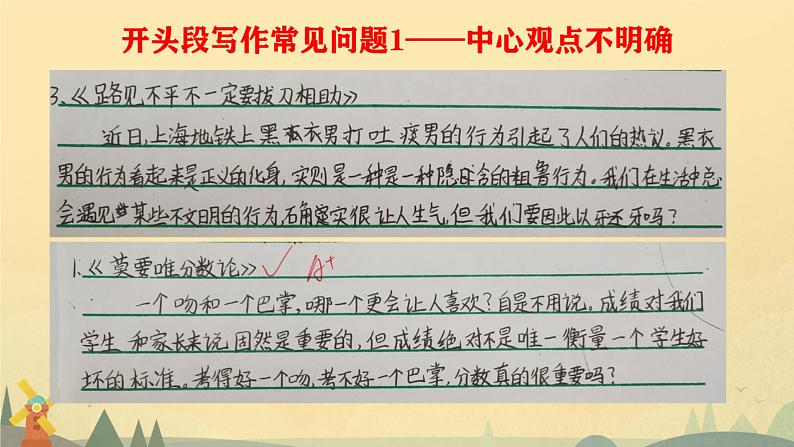 开头段写作常见问题1——中心观点不明确
3、《路见不平不一定要拔刀相助》
近日,上海地铁上黑衣男打吐痰男的行为引起了人们的热议。黑衣
男的行为看起来是正义的化身,实则是一种是一种隐含的粗鲁行为。我们在生活中总
会遇见某些不文明的行为,确实很让人生气,但我们要因此以牙还牙吗?
1.《莫要唯分数论》 A+
一个吻和一个巴掌,哪一个更会让人喜欢?自是不用说。成绩对我们
学生和家长来说固然是重要的,但成绩绝对不是唯一衡量一个学生好
坏的标准。考得好一个吻,考不好一个巴掌,分数真的很重要吗?